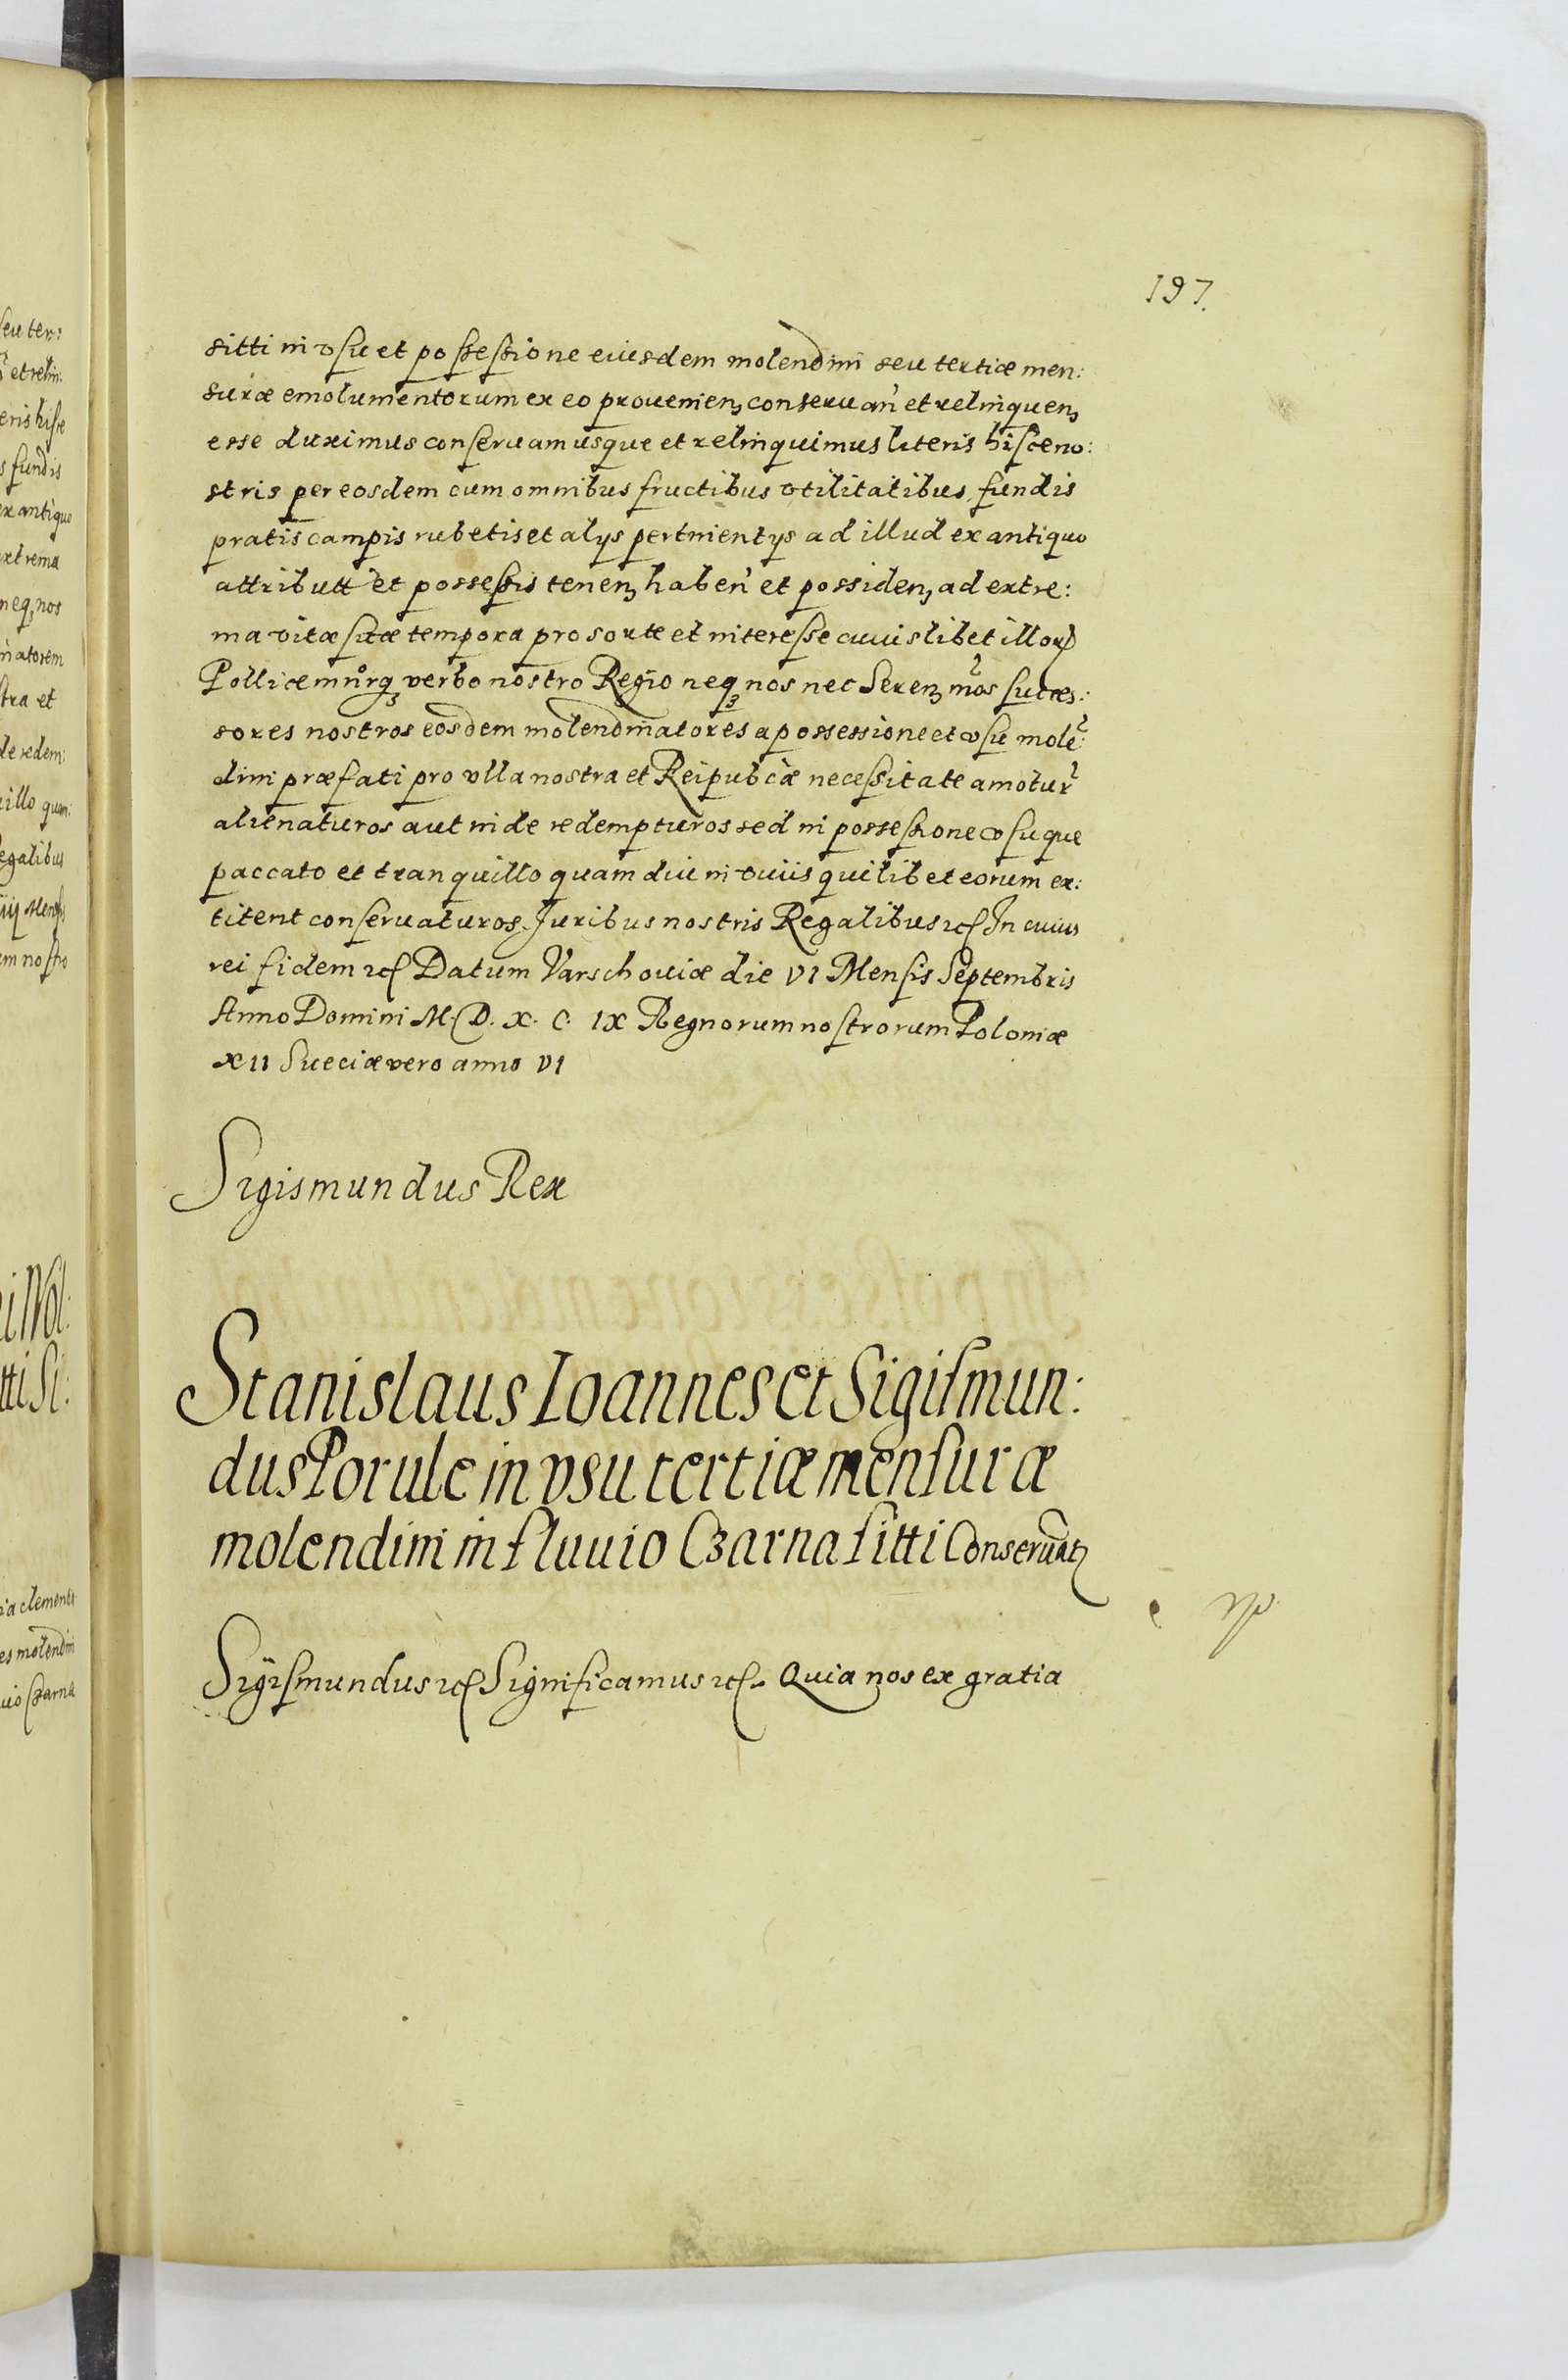 197.
sitti in vsu et possessione eiusdem molendini seu tertiæ men:
suræ emolumentorum ex eo prouenienꝫ conseruan̄ et relinquenꝫ
esse duximus conseruamusque et relinquimus literis hisce no:
stris per eosdem cum omnibus fructibus vtilitatibus fundis
pratis campis rubetis et alÿs pertinentÿs ad illud ex antiquo
attributt̄ et possessis tenenꝫ haben̄ et possidenꝫ ad extre:
ma vitæ suæ tempora pro sorte et interesse cuiuslibet illorꝝ
Pollicemurqꝫ verbo nostro Regio neqꝫ nos nec Serenꝫ mos succes:
sores nostros eosdem molendinatores a possessione et vsu molē:
dini præfati pro vlla nostra et Reipubcæ necessitate amotur̄
alienaturos aut inde redempturos sed in possessione vsuque
paccato et tranquillo quam diu in viuis quilibet eorum ex:
titent conseruaturos. Juribus nostris Regalibus etc In cuius
rei fidem etc Datum Varschouiæ die VI Mensis Septembris
Anno Domini M. D. X. C. IX Regnorum nostrorum Poloniæ
XII Sueciæ vero anno VI
Sigismundus Rex
Stanislaus Ioannes et Sigismun:
dus Porule in vsu tertiæ mensuræ
molendini in fluuio Czarna sitti Conseruantꝫ
Sigismundus etc Significamus etc. Quia nos ex gratia